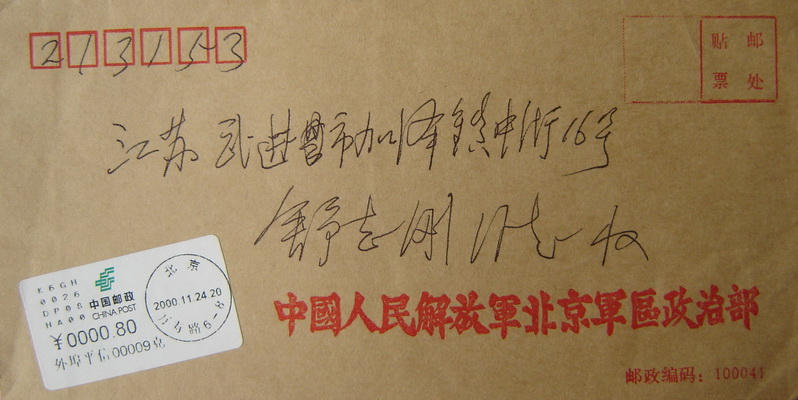 213153
邮
贴
处
票
江苏武进市加泽镇中街16号
舒志刚同志收
K6GH
0026
DP08
HA00
中国邮政
CHINA POST
¥0000.80
外埠平信00009克
北京
2000.11.24.20
中國人民解放軍北京軍區政治部
邮政编码：100041